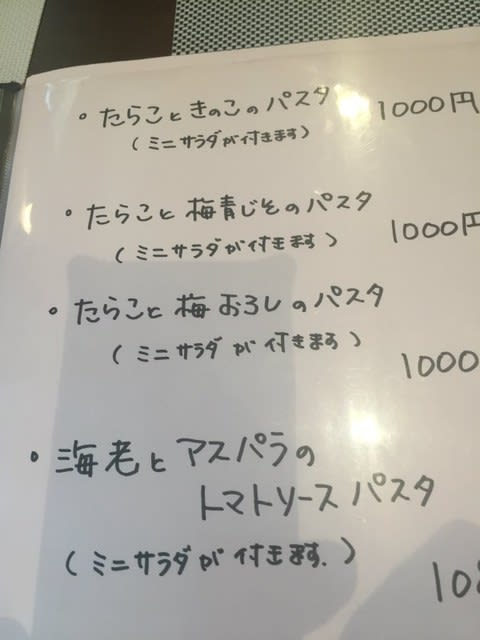 ・たらこときのこのパスタ 1000円
(ミニサラダが付きます)
・たらこと梅青じそのパスタ 1000円
(ミニサラダが付きます)
・たらこと梅おろしのパスタ 1000
(ミニサラダが付きます)
・海老とアスパラの
トマトソースパスタ
(ミニサラダが付きます.) 10